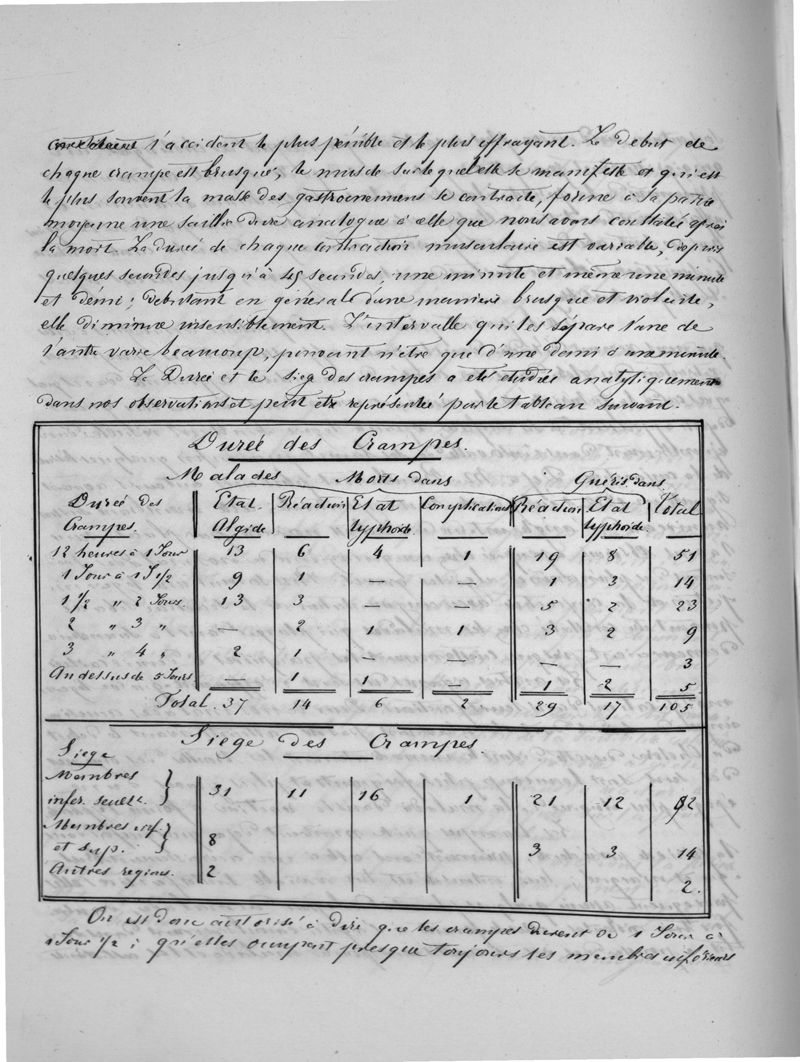 l'accident le plus pénible et le plus effrayant. Le début de
chaque crampe est brusque, le muscle sur lequel elle se manifeste et qui est
le plus souvent la masse des gastrocnemiens se contracte, forme à sa partie
moyenne une saillie dure analogue à celle que nous avons constatée après
la mort. La durée de chaque contraction musculaire est variable, depuis
quelques secondes jusqu'à 45 secondes, une minute et même une minute
et demi; debutant en général d'une manière brusque et violente,
elle diminue insensiblement. L'intervalle qui les sépare l'une de
l'autre varie beaucoup, pouvant n'être que d'une demi à une minute.
La Durée et le siege des crampes a été étudiée analytiquement
dans nos observations et peut être représentée par le tableau suivant.
Durée des Crampes.
Malades Morts dans Guéris dans
Durée des Crampes. Etat Algide Réaction Etat typhoïde Complications Réaction Etat typhoïde Total
12 heures à 1 Jour 13 6 4 1 19 8 51
1 Jour à 1 J 1/2 9 1 — — 1 3 14
1 1/2 " 2 Jours 13 3 — — 5 2 23
2 " 3 " — 2 1 1 3 2 9
3 " 4 " 2 1 — — — — 3
Au dessus de 5 Jours — 1 1 — 1 2 5
Total. 37 14 6 2. 29 17 105
Siege des Crampes.
Siege
Membres infer. seult. 31 11 16 1 21 12 92
Membres inf. et sup. 8 3 3 14
Autres regions. 2 2.
On est donc autorisé à dire que les crampes durent de 1 Jour à
1 Jour 1/2; qu'elles occupent presque toujours les membres inférieurs